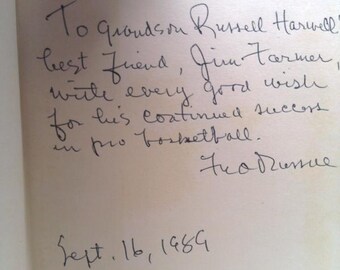 To Grandson Russell Harwell's
best friend, Jim Farmer,
with every good wish
for his continued success
in pro basketball.
Fred Russell
Sept. 16, 1989